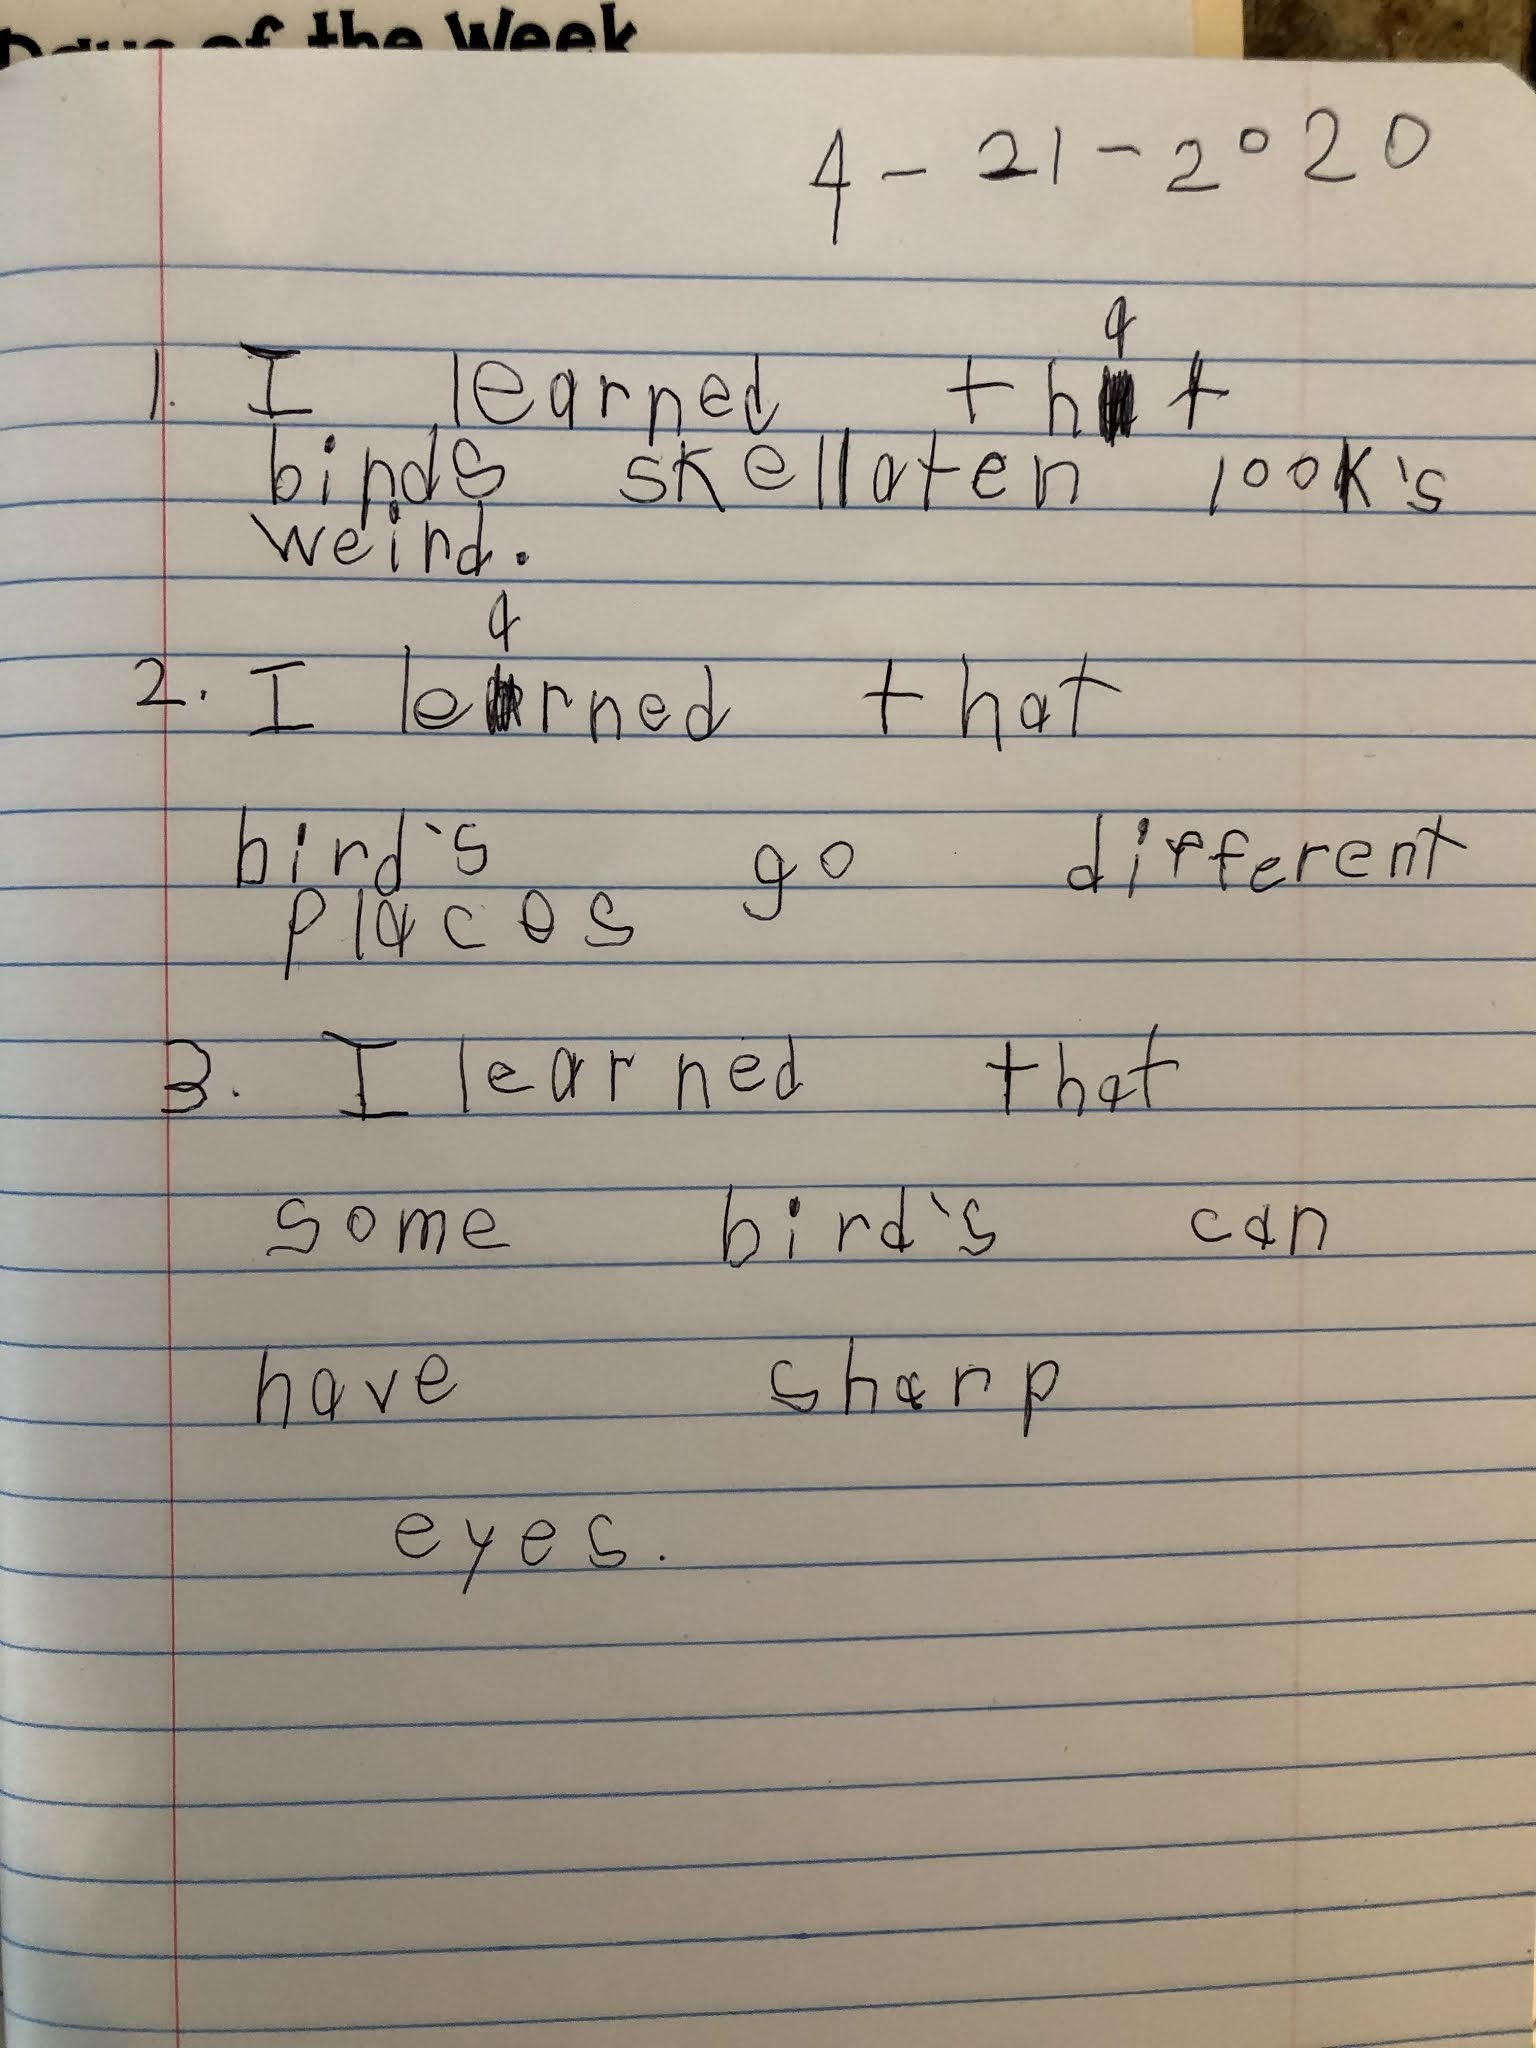 Days of the Week
4-21-2020
1. I learned that
birds skellaten look's
weird.
2. I learned that
bird's go different
places
3. I learned that
some bird's can
have sharp
eyes.